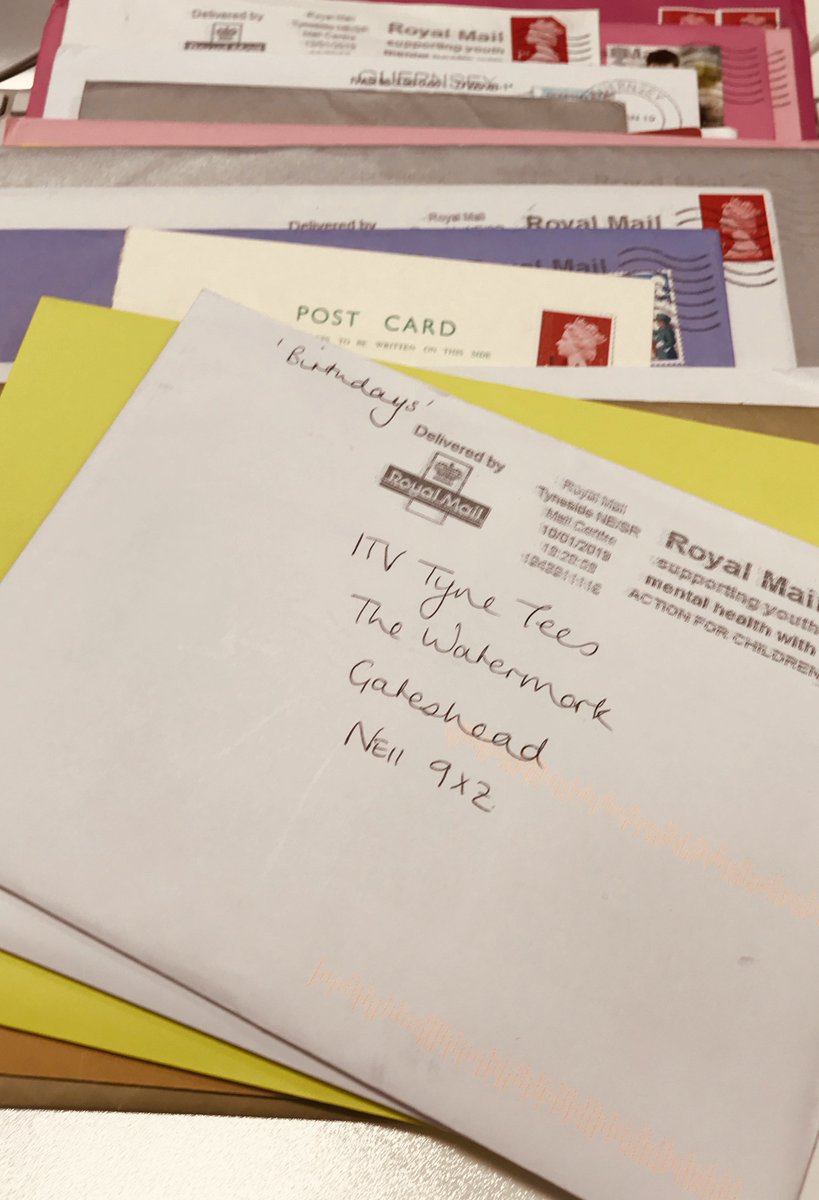 Delivered by
Royal Mail
Royal Mail
Tyneside NE/SR
Mail Centre
Royal Mail
supporting youth
mental health with
1st
GUERNSEY
Delivered by
Royal Mail
Royal Mail
Mail
POST CARD
TO BE WRITTEN ON THIS SIDE
'Birthdays'
Delivered by
Royal Mail
Royal Mail
Tyneside NE/SR
Mail Centre
10/01/2019
Royal Mail
supporting youth
mental health with
ACTION FOR CHILDREN
ITV Tyne Tees
The Watermark
Gateshead
NE11 9XZ